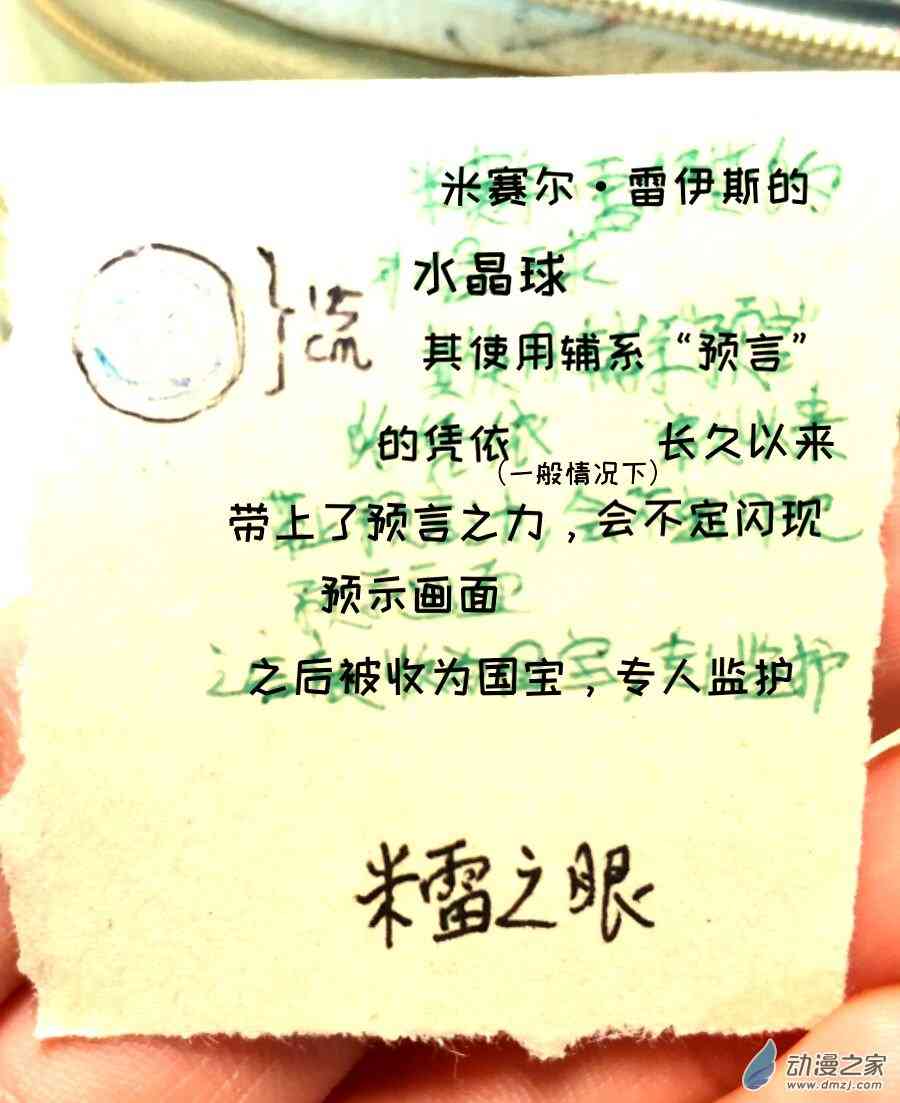 米赛尔·雷伊斯的
水晶球
15
cm
其使用辅系“预言”
的凭依 长久以来
(一般情况下)
带上了预言之力，会不定闪现
预示画面
之后被收为国宝，专人监护
米雷之眼
动漫之家
www.dmzj.com